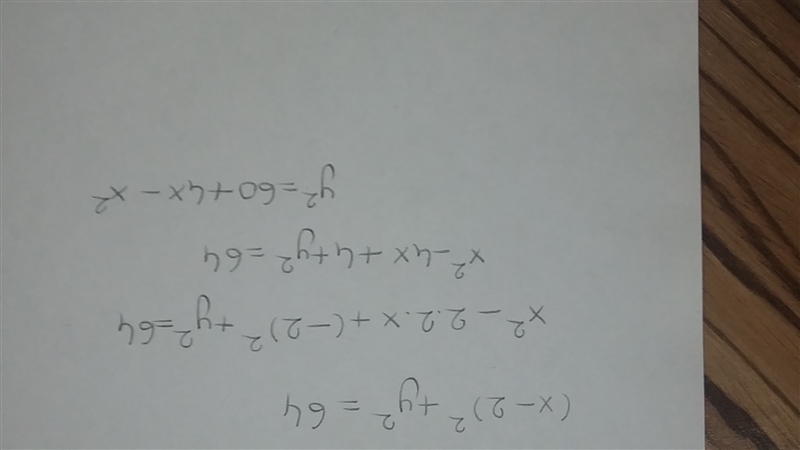 (x-2)² + y² = 64
x² - 2.2.x + (-2)² + y² = 64
x² - 4x + 4 + y² = 64
y² = 60 + 4x - x²